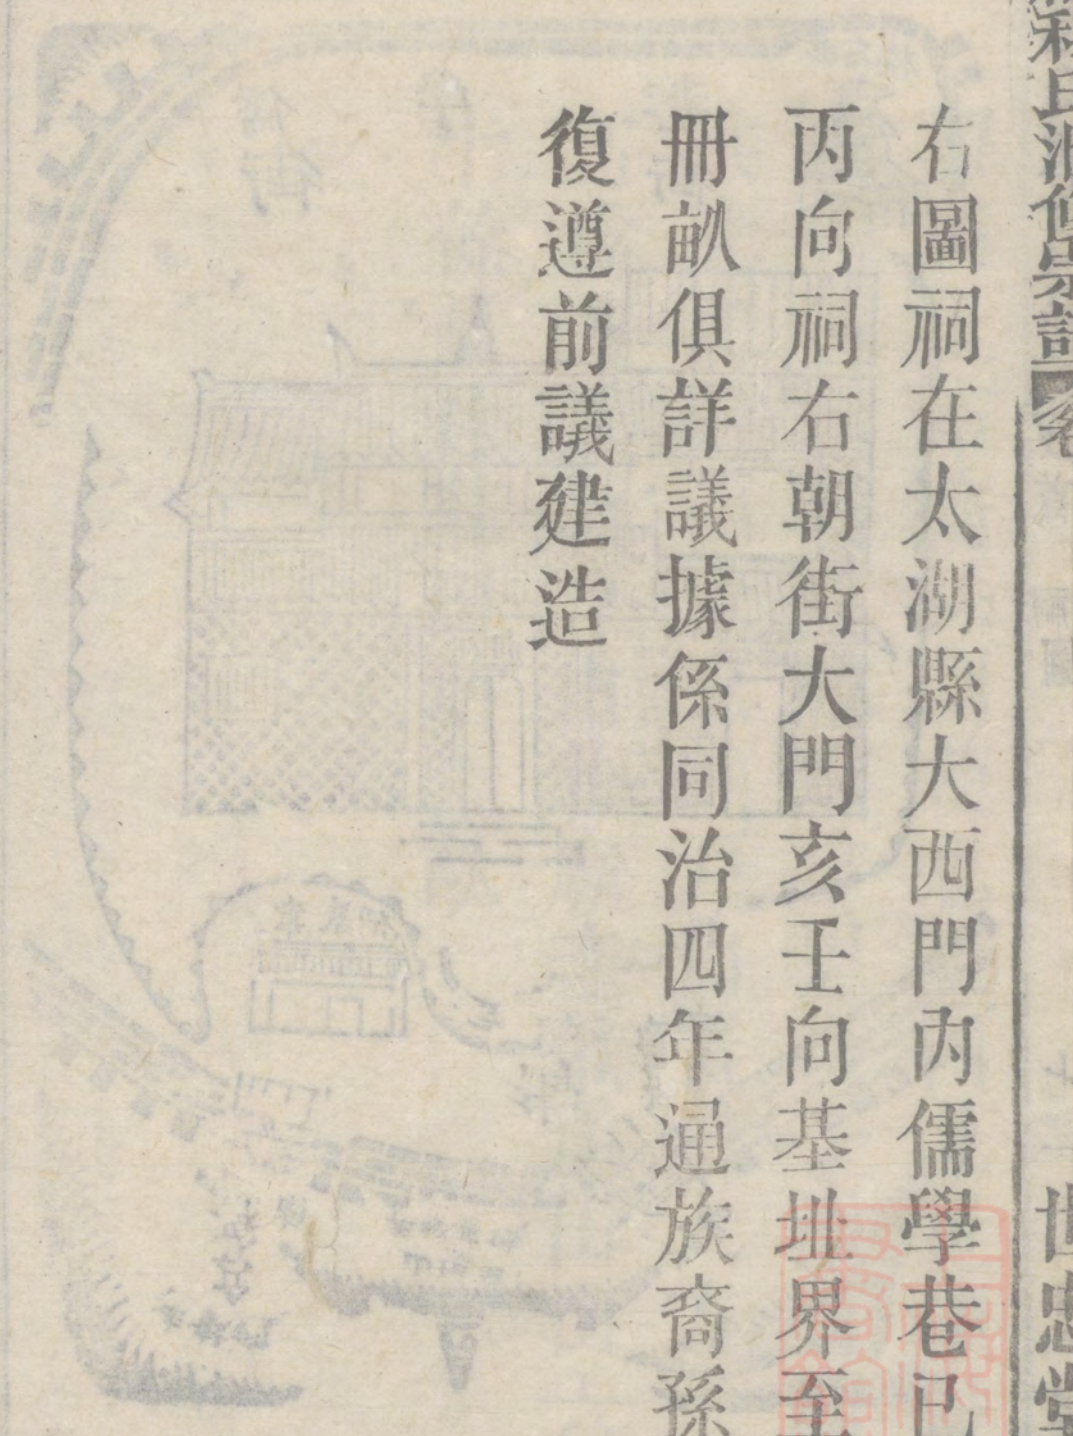 世忠堂
右圖祠在太湖縣大西門內儒學巷巳
丙向祠右朝街大門亥壬向基址界至
冊畝俱詳議據係同治四年通族裔孫
復遵前議建造